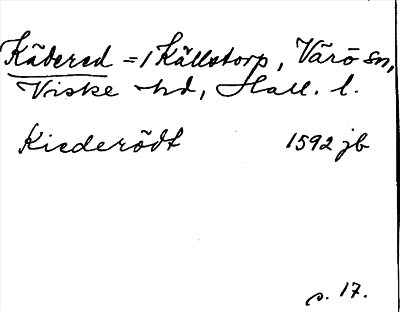 Kädered = / Källstorp, Värö sn,
Viske hd, Hall. l.
Kiederödt 1592 jb
s. 17.